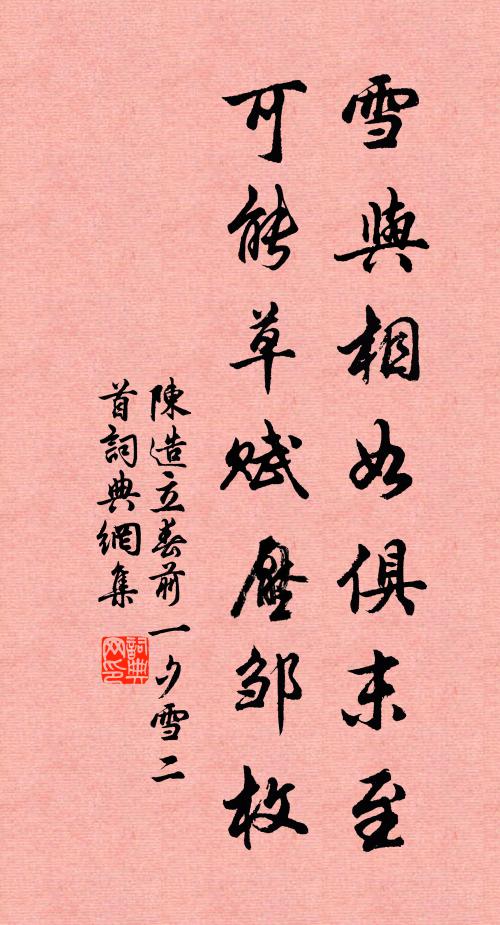 雪與相如俱末至
可能草賦壓邹枚
陳造立春前一夕雪二
首詞典網集
詞典网印